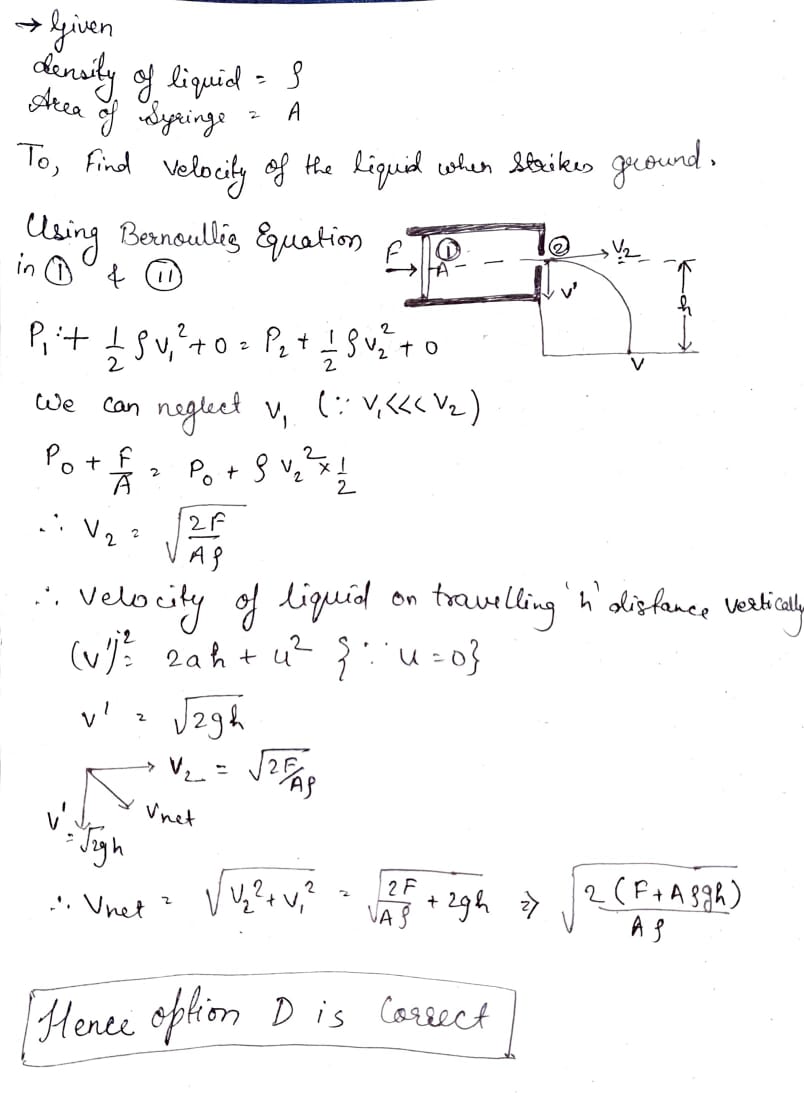 → Given
density of liquid = ρ
Area of Syringe = A
To, Find Velocity of the liquid when strikes ground.
Using Bernoullis Equation
in ① & ⑪
F ① A ② V₂ V' h V
P₁ + 1/2 ρv₁² + 0 = P₂ + 1/2 ρv₂² + 0
We can neglect v₁ (∵ v₁<<<v₂)
P₀ + F/A = P₀ + ρ v₂² × 1/2
∴ V₂ = √(2F/Aρ)
∴ Velocity of liquid on travelling 'h' distance vertically
(v')² = 2ah + u² {∵ u = 0}
v' = √2gh
V₂ = √(2F/Aρ)
V' = √2gh
Vnet
∴ Vnet = √(V₂² + V₁²) = √(2F/Aρ + 2gh) ⇒ √(2(F+Aρgh)/Aρ)
Hence option D is Correct